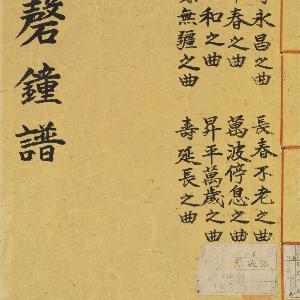 永昌之曲 長春不老之曲
春之曲 萬波停息之曲
和之曲 昇平萬歲之曲
無疆之曲 壽延長之曲
磬鐘譜